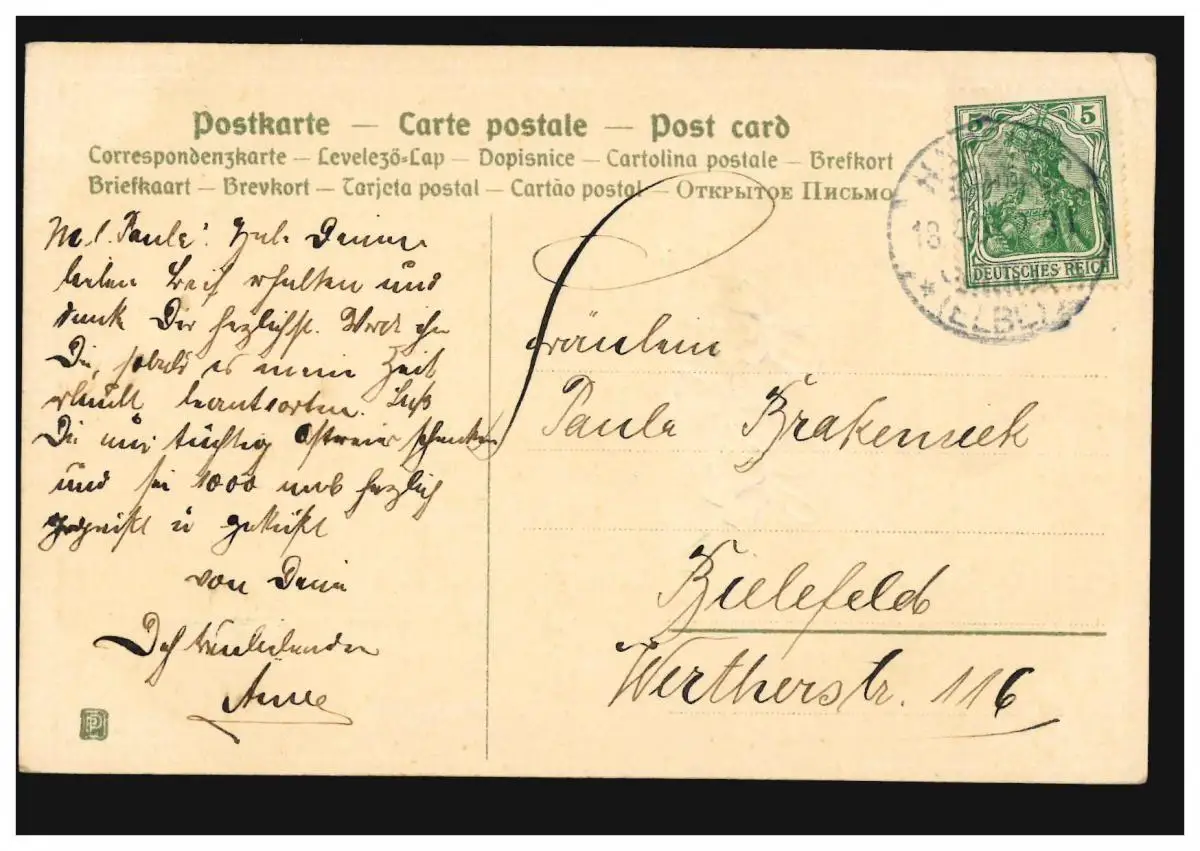 Postkarte — Carte postale — Post card
Correspondenzkarte — Levelező-Lap — Dopisnice — Cartolina postale — Brefkort
Briefkaart — Brevkort — Tarjeta postal — Cartão postal — Открытое Письмо
5 5
DEUTSCHES REICH
18
* (ELBE) *
M. l. Paula! Habe Deinen
lieben Brief erhalten und
danke Dir herzlichst. Werde ihn
Dir, sobald es meine Zeit
erlaubt beantworten. Laß
Dir nur tüchtig Ostereier schenken
und sei 1000 mal herzlich
gegrüßt u geküßt
von Deiner
Dich
Fräulein
Paula Brakensiek
Bielefeld
Wertherstr. 116